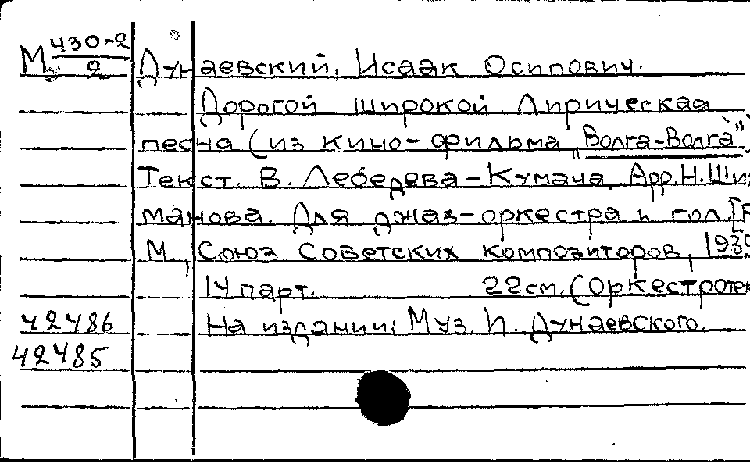 М 430-2
2
Дунаевский, Исаак Осипович.
Дорогой широкой Лирическая
песня (из кино-фильма "Волга-Волга")
Текст В. Лебедева-Кумача, Арр. Н. Ши
манова. Для джаз-оркестра и гол.
М, Союз Советских композиторов,
14 парт. 22см. (Оркестротек
42486 На издании: Муз. И. Дунаевского.
42485